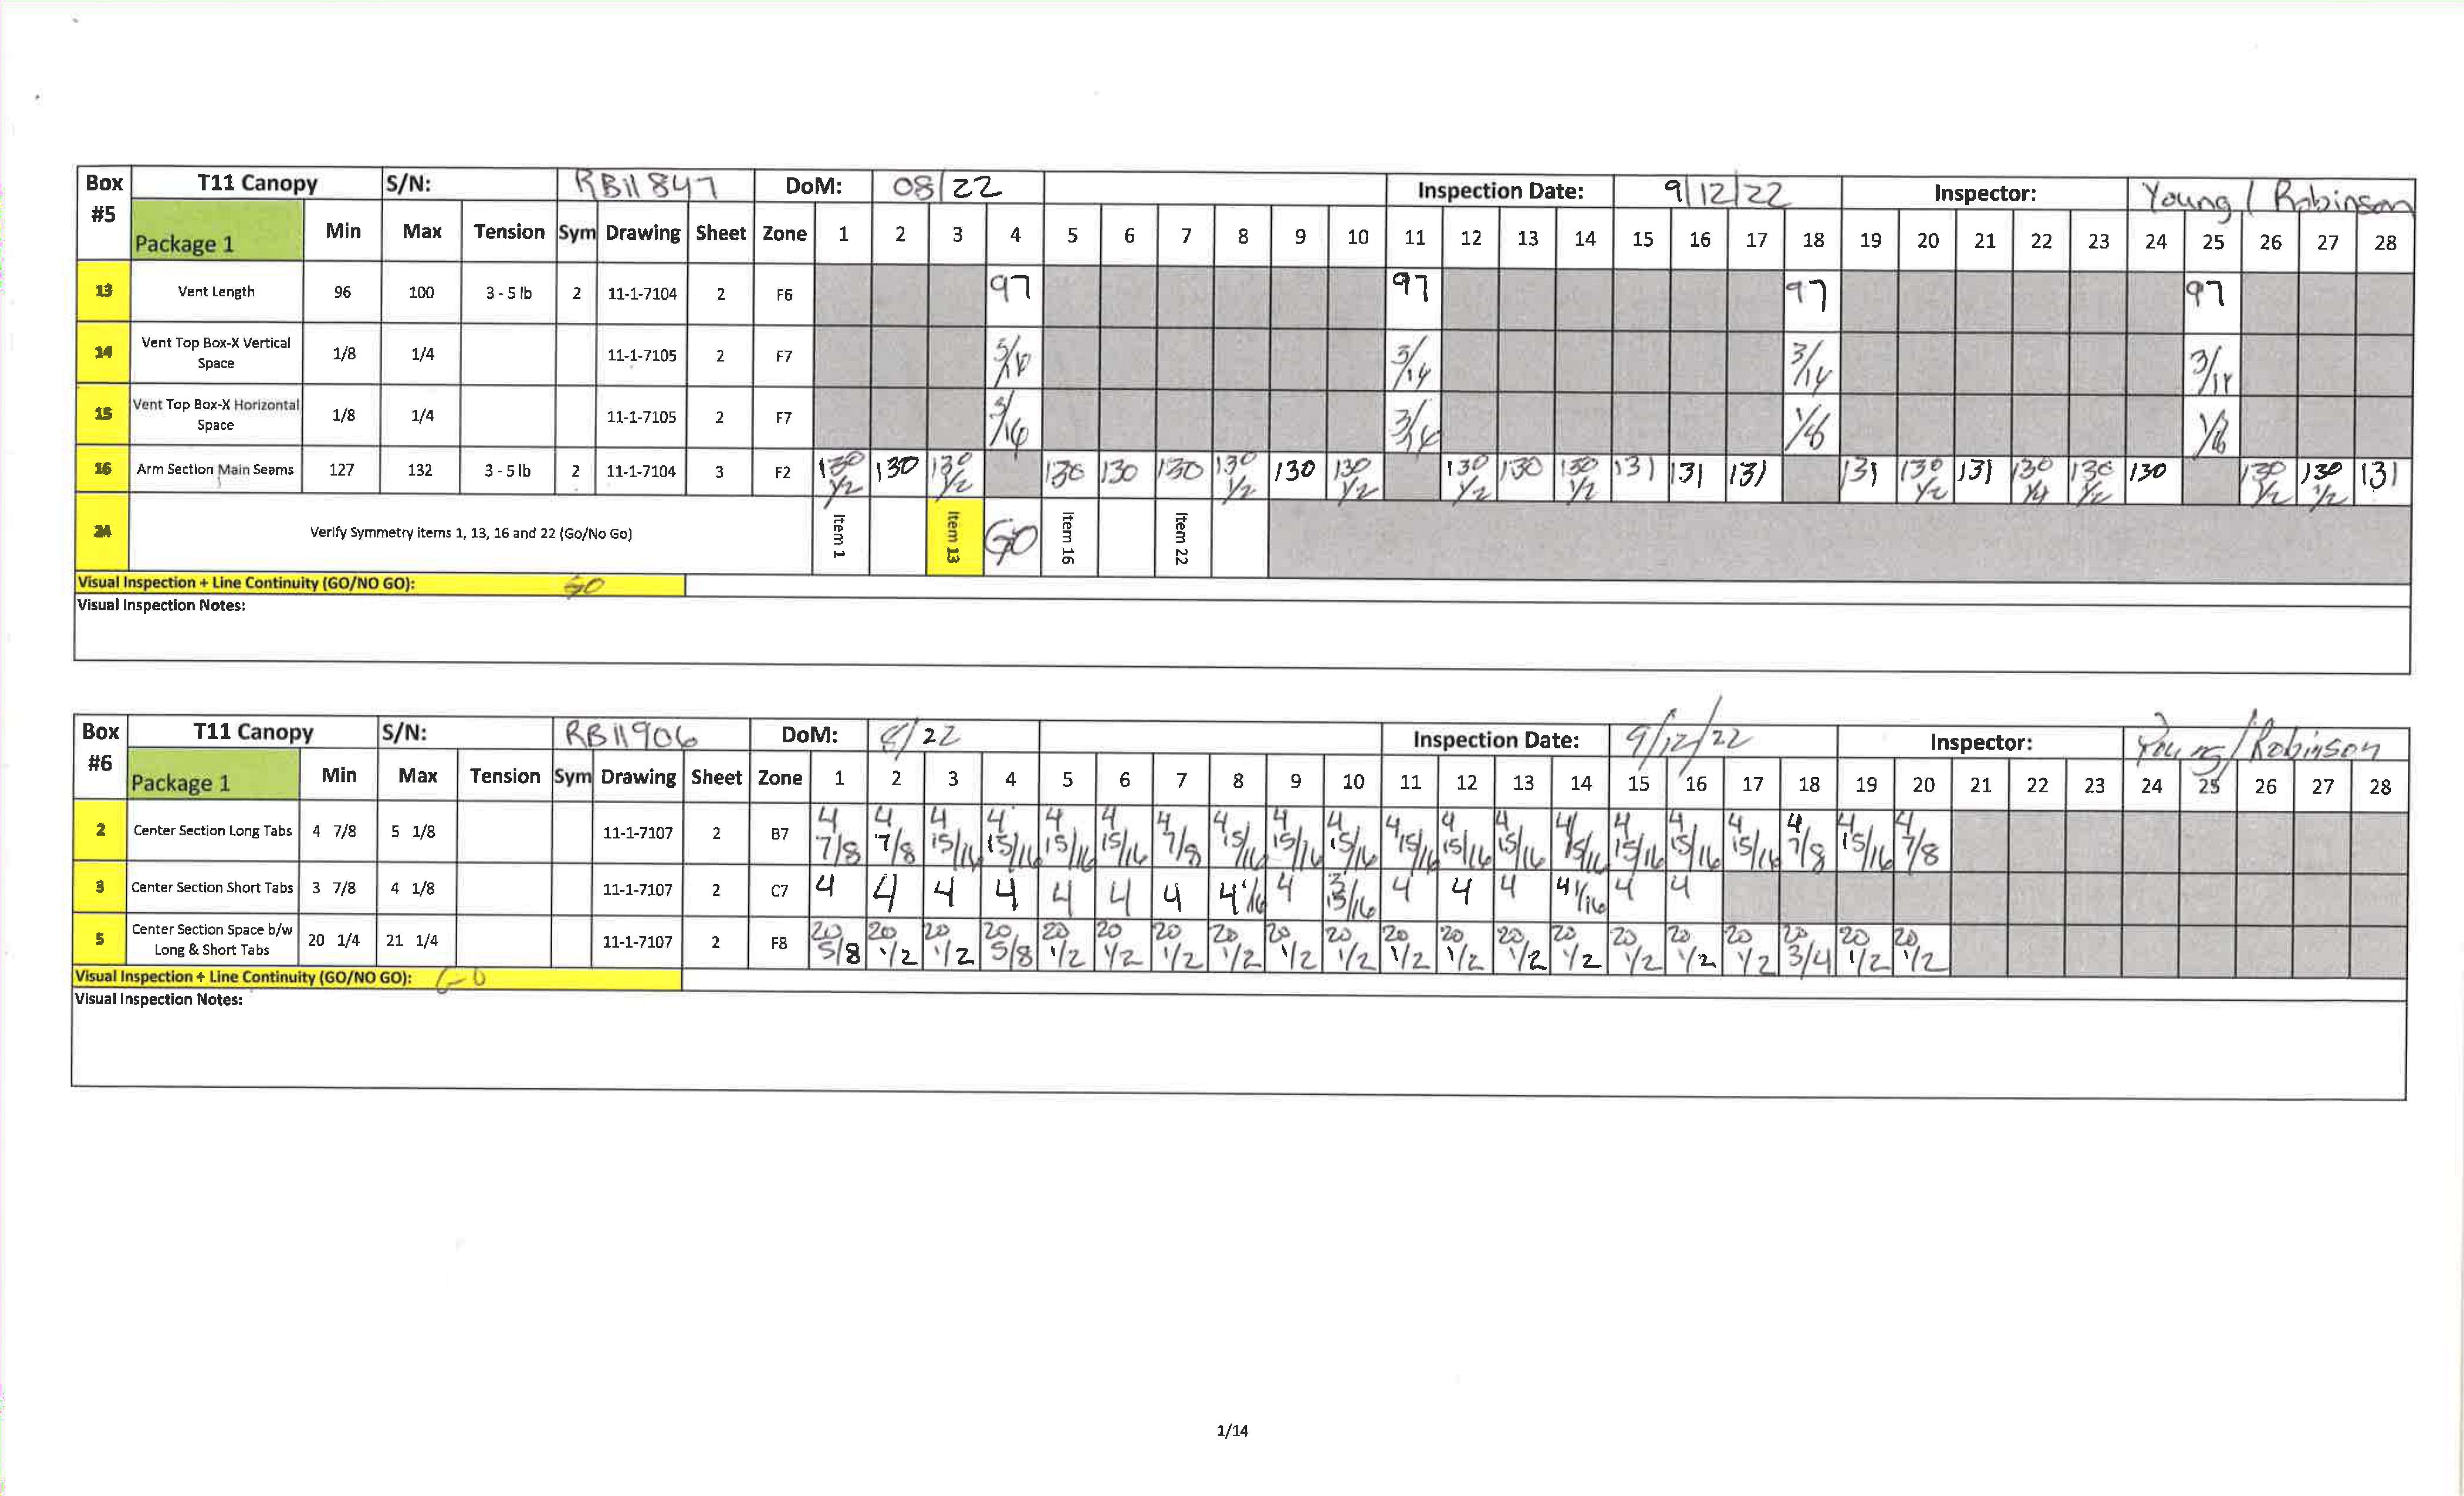 Box #5 T11 Canopy S/N: RB11847 DoM: 08/22 Inspection Date: 9/12/22 Inspector: Young / Robinson
Package 1 Min Max Tension Sym Drawing Sheet Zone 1 2 3 4 5 6 7 8 9 10 11 12 13 14 15 16 17 18 19 20 21 22 23 24 25 26 27 28
13 Vent Length 96 100 3 - 5 lb 2 11-1-7104 2 F6 97 97 97 97
14 Vent Top Box-X Vertical Space 1/8 1/4 11-1-7105 2 F7 3/16 3/16 3/16 3/16
15 Vent Top Box-X Horizontal Space 1/8 1/4 11-1-7105 2 F7 3/16 3/16 1/8 1/8
16 Arm Section Main Seams 127 132 3 - 5 lb 2 11-1-7104 3 F2 130 1/2 130 130 1/2 130 130 130 130 1/2 130 130 1/2 130 1/2 130 130 1/2 131 131 131 131 130 1/2 131 130 1/4 130 1/2 130 130 1/2 130 1/2 131
24 Verify Symmetry items 1, 13, 16 and 22 (Go/No Go) Item 1 Item 13 GO Item 16 Item 22
Visual Inspection + Line Continuity (GO/NO GO): GO
Visual Inspection Notes:
Box #6 T11 Canopy S/N: RB11906 DoM: 8/22 Inspection Date: 9/12/22 Inspector: Young/Robinson
Package 1 Min Max Tension Sym Drawing Sheet Zone 1 2 3 4 5 6 7 8 9 10 11 12 13 14 15 16 17 18 19 20 21 22 23 24 25 26 27 28
2 Center Section Long Tabs 4 7/8 5 1/8 11-1-7107 2 B7 4 7/8 4 7/8 4 15/16 4 15/16 4 15/16 4 15/16 4 7/8 4 15/16 4 15/16 4 15/16 4 15/16 4 15/16 4 15/16 4 15/16 4 15/16 4 15/16 4 15/16 4 7/8 4 15/16 4 7/8
3 Center Section Short Tabs 3 7/8 4 1/8 11-1-7107 2 C7 4 4 4 4 4 4 4 4 1/16 4 3 15/16 4 4 4 4 1/16 4 4
5 Center Section Space b/w Long & Short Tabs 20 1/4 21 1/4 11-1-7107 2 F8 20 5/8 20 1/2 20 1/2 20 5/8 20 1/2 20 1/2 20 1/2 20 1/2 20 1/2 20 1/2 20 1/2 20 1/2 20 1/2 20 1/2 20 1/2 20 1/2 20 1/2 20 3/4 20 1/2 20 1/2
Visual Inspection + Line Continuity (GO/NO GO): GO
Visual Inspection Notes:
1/14